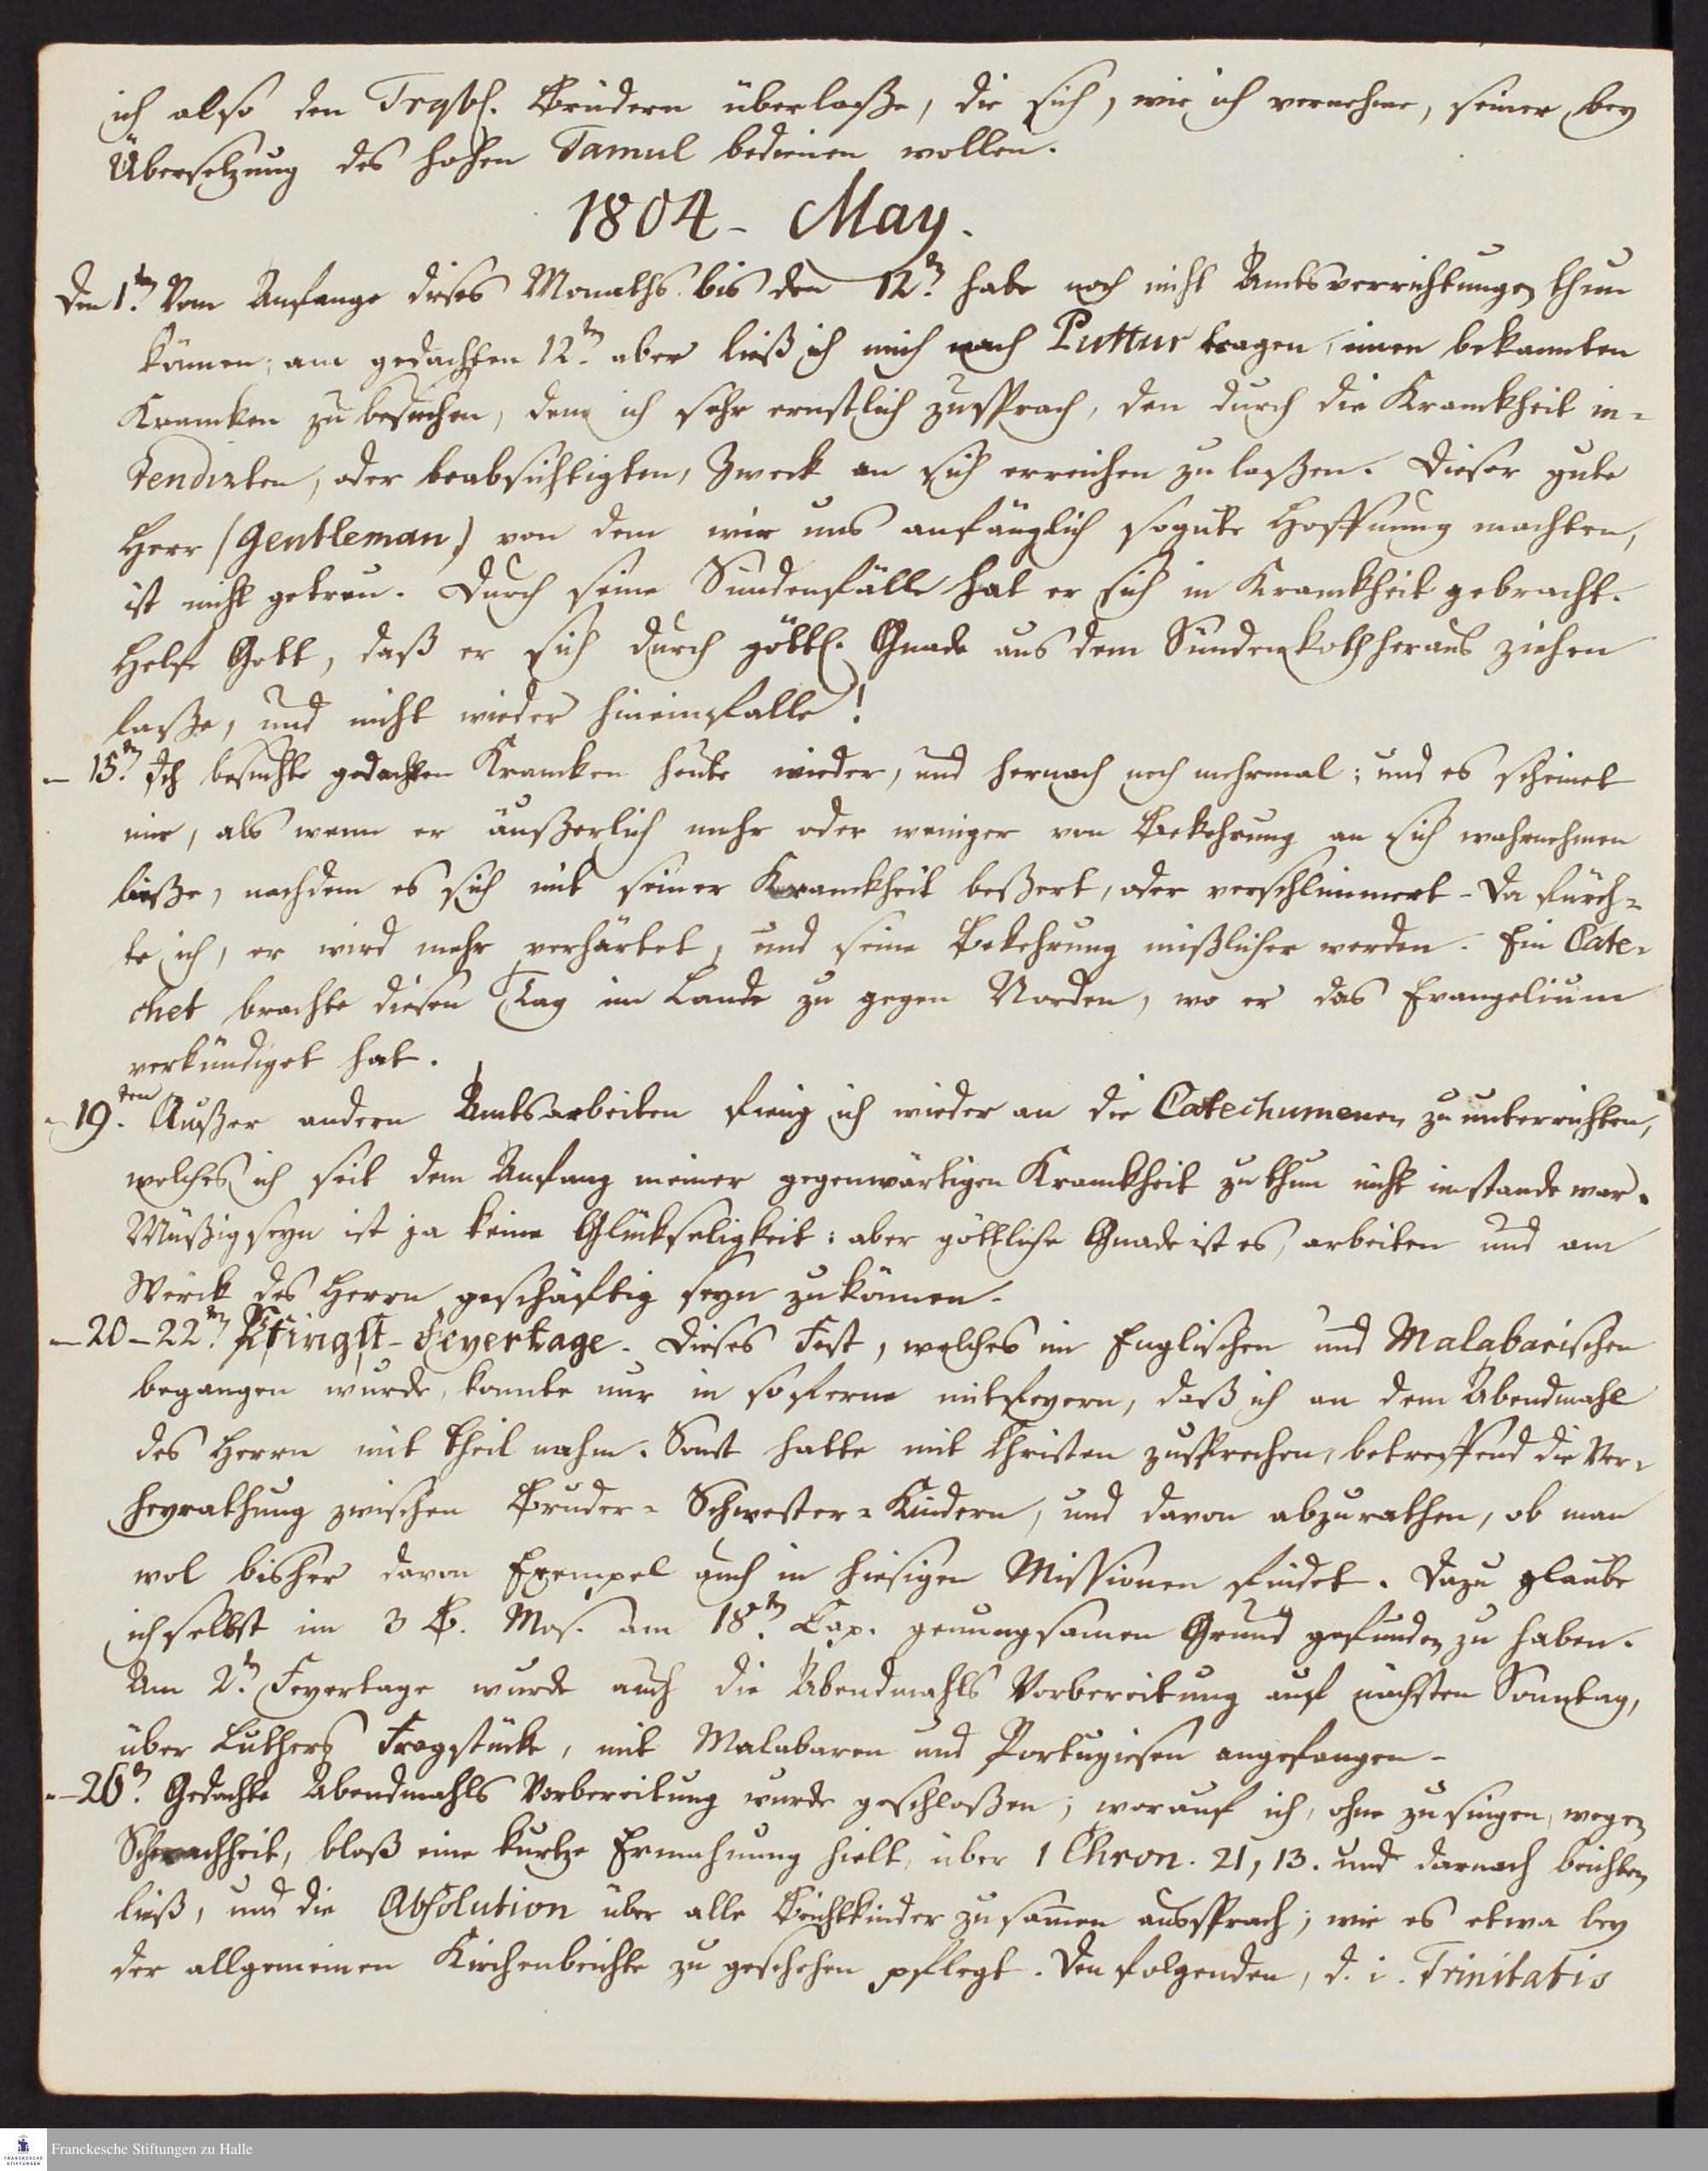 ich also den Trqbl. Brüdern überlaße, die sich, wie ich vernehme, seiner bey
Übersetzung des hohen Tamul bedienen wollen.
1804 - May.
Den 1.ten Vom Anfange dieses Monaths bis den 12.ten habe noch nicht Amtsverrichtungen thun
können; am gedachten 12.ten aber ließ ich mich nach Puttur tragen, einen bekannten
Krancken zu besuchen, dem ich sehr ernstlich zusprach, den durch die Kranckheit in-
tendirten, oder beabsichtigten, Zweck an sich erreichen zu laßen. Dieser gute
Herr (Gentleman) von dem wir uns anfänglich so gute Hoffnung machten,
ist nicht getreu. Durch seine Sündenfälle hat er sich in Kranckheit gebracht.
Helfe Gott, daß er sich durch göttl. Gnade aus dem Sündenkoth heraus ziehen
laße, und nicht wieder hineinfalle!
– 15.ten Ich besuchte gedachten Krancken heute wieder, und hernach noch mehrmal; und es scheinet
mir, als wenn er äußerlich mehr oder weniger von Bekehrung an sich wahrnehmen
ließe, nachdem es sich mit seiner Kranckheit beßert, oder verschlimmert - Da fürch-
te ich, er wird mehr verhärtet, und seine Bekehrung mißlicher werden. Ein Cate-
chet brachte diesen Tag im Lande zu gegen Norden, wo er das Evangelium
verkündiget hat.
- 19.ten Außer andern Amtsarbeiten fieng ich wieder an die Catechumenen zu unterrichten,
welches ich seit dem Anfang meiner gegenwärtigen Kranckheit zu thun nicht imstande war.
Müßig seyn ist ja keine Glückseligkeit: aber göttliche Gnade ist es, arbeiten und am
Werck des Herrn geschäftig seyn zu können.
– 20 – 22.ten Pfingst-Feyertage. Dieses Fest, welches im Englischen und Malabarischen
begangen wurde, konnte nur in so ferne mitfeyern, daß ich an dem Abendmahl
des Herrn mit Theil nahm. Sonst hatte mit Christen zu sprechen, betreffend die Ver-
heyrathung zwischen Bruder- Schwester-Kindern, und davon abzurathen, ob man
wol bisher davon Exempel auch in hiesigen Missionen findet. Dazu glaube
ich selbst im 3 B. Mos. am 18.ten Cap. genungsamen Grund gefunden zu haben.
Am 2.ten Feyertage wurde auch die Abendmahls Vorbereitung auf nächsten Sonntag,
über Luthers Fragstücke, mit Malabaren und Portugiesen angefangen -
– 26.ten Gedachte Abendmahls Vorbereitung wurde geschloßen; worauf ich, ohne zu singen, wegen
Schwachheit, bloß eine kurtze Ermahnung hielt, über 1 Chron. 21, 13. und darnach beichten
ließ, und die Absolution über alle Beichtkinder zusamen aussprach; wie es etwa bey
der allgemeinen Kirchenbeichte zu geschehen pflegt. Den folgenden, d. i. Trinitatis
Franckesche Stiftungen zu Halle
FRANCKESCHE
STIFTUNGEN